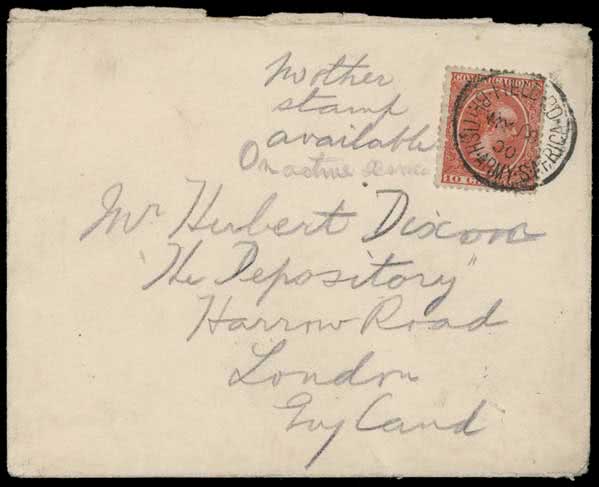 No other
stamp
available
On active
Mr Herbert Dixon
"The Depository"
Harrow Road
London
England
COMUNICACIONES
10
FIELD P.O.
BRITISH ARMY S. AFRICA
00